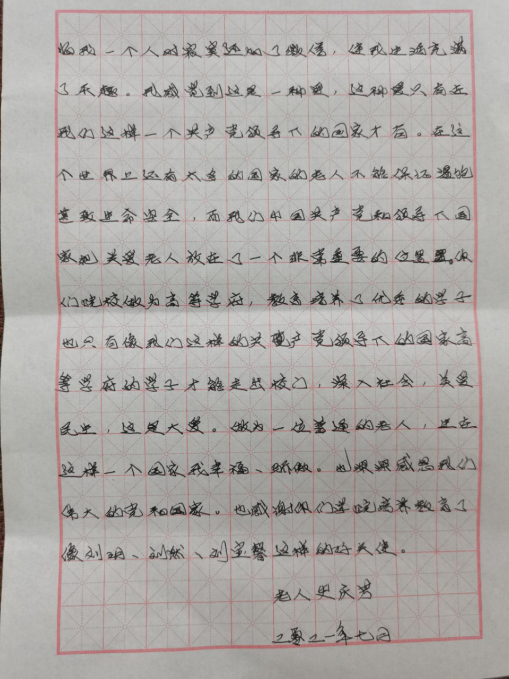 给我一个人的寂寞送回了微信，使我生活充满
了乐趣。我感觉到这是一种爱，这种爱只有在
我们这样一个共产党领导下的国家才有。在这
个世界上还有太多的国家的老人不能保证温饱
甚致生命安全，而我们中国共产党和领导下国
家把关爱老人放在了一个非常重要的位置。你
们院校做为高等学府，教育培养了优秀的学子
也只有像我们这样的共产党领导下的国家高
等学府的学子才能走出校门，深入社会，关爱
民生，这是大爱。做为一位普通的老人，生在
这样一个国家我幸福、骄傲。也深深感恩我们
伟大的党和国家。也感谢你们学院培养教育了
像刘明、刘然、刘宝馨这样的好天使。
老人史庆芳
二零二一年七月